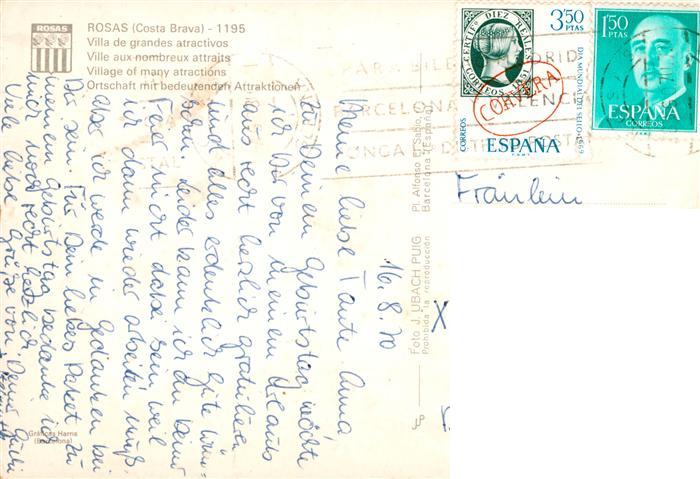 ROSAS
ROSAS (Costa Brava) - 1195
Villa de grandes atractivos
Ville aux nombreux attraits
Village of many attractions
Ortschaft mit bedeutenden Attraktionen
CERTIFdo DIEZ REALES
CORREOS 1851
3,50
PTAS
CORVERA
CORREOS
ESPAÑA
DIA MUNDIAL DEL SELLO 1969
1,50
PTAS
ESPAÑA
CORREOS
BARCELONA
Fräulein
16.8.70
Meine liebe Tante Anna
zu Deinem Geburtstag möchte
ich Dir von meinem Urlaub
aus recht herzlich gratulieren
und alles erdenklich Gute wün-
schen. Leider kann ich zu Deiner
Feier nicht dabei sein weil
ich dann wieder arbeiten muß.
Aber ich werde in Gedanken bei
Dir sein. Für Dein liebes Paket zu
meinem Geburtstag bedanke ich
mich noch recht herzlich.
Viele liebe Grüße von Deiner
Pl. Alfonso el Sabio,
Barcelona (España)
Foto J. UBACH PUIG
Prohibida la reproducción
Gráficas Harria
(Barcelona)